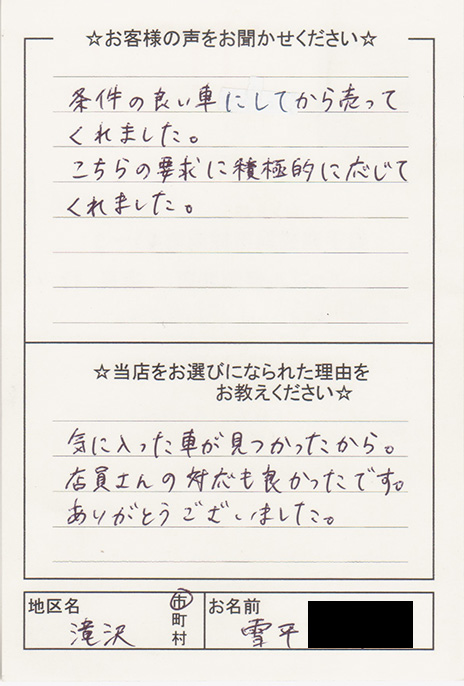 ☆お客様の声をお聞かせください☆
条件の良い車にしてから売って
くれました。
こちらの要求に積極的に応じて
くれました。
☆当店をお選びになられた理由を
お教えください☆
気に入った車が見つかったから。
店員さんの対応も良かったです。
ありがとうございました。
地区名
滝沢
市
町
村
お名前
雪平